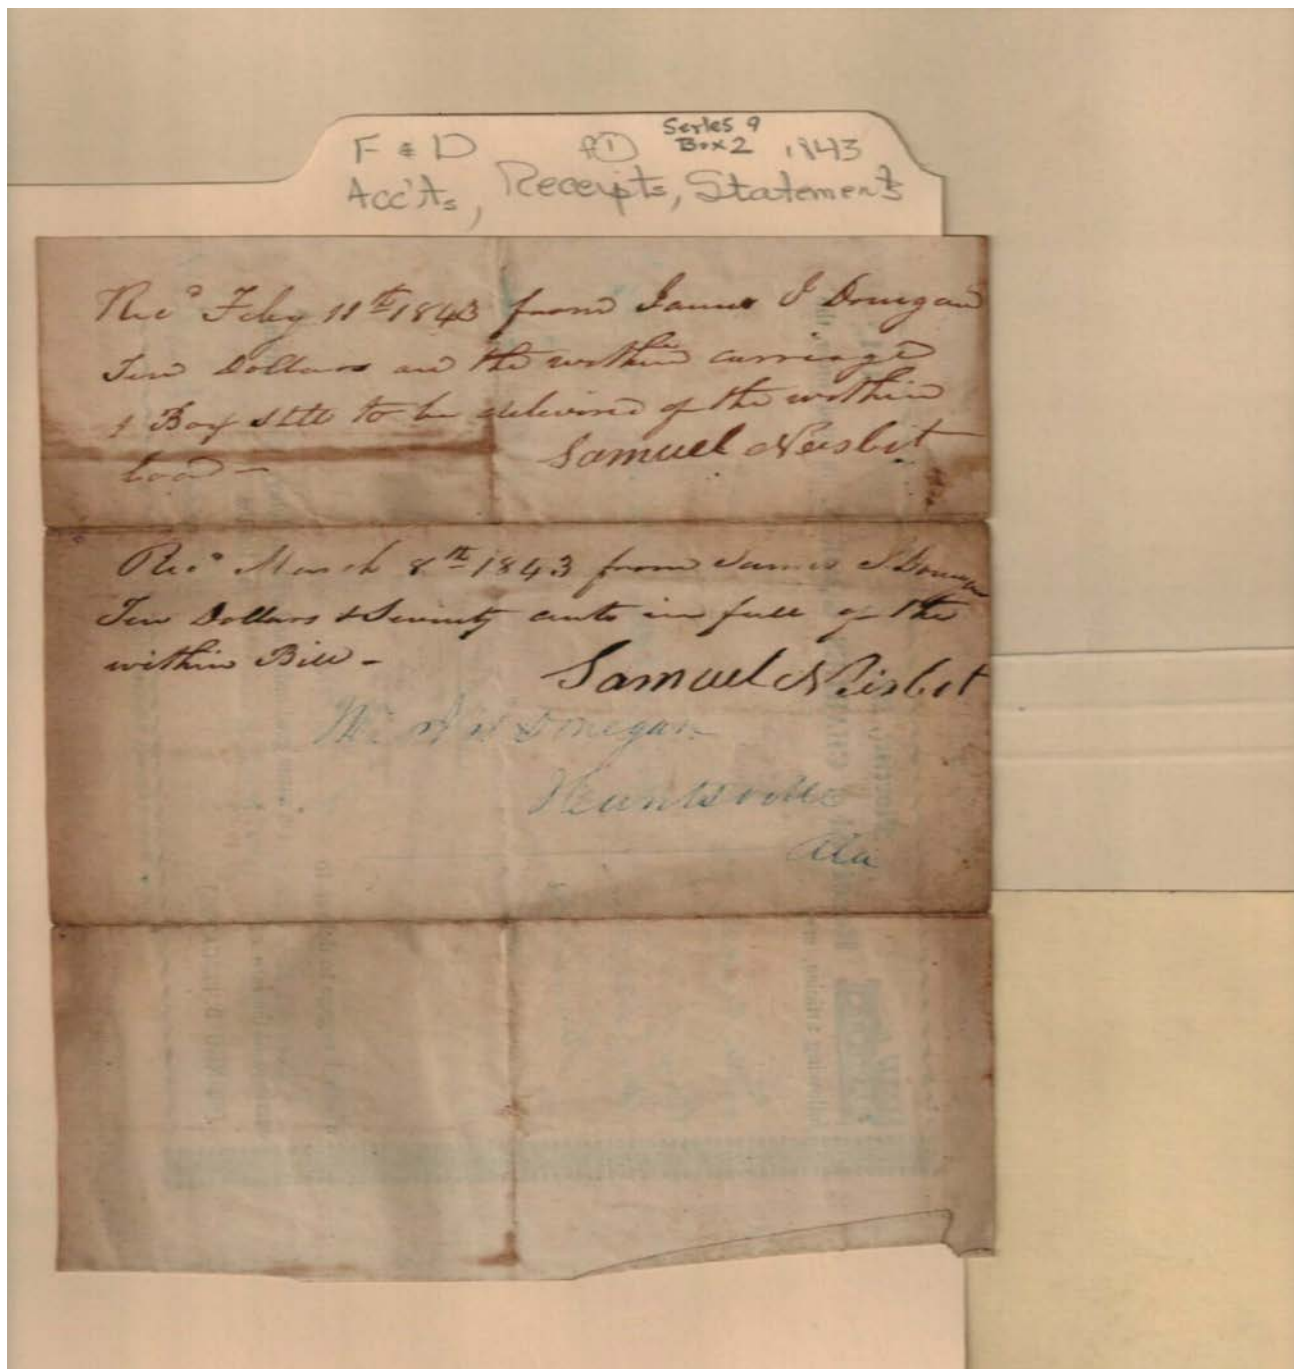 F & D ① Series 9 Box 2 1843
Acc'ts, Receipts, Statements
Recd Feby 11th 1843 from James J Donegan
Ten Dollars on the within carriage
1 Box still to be delivered of the within
load —
Samuel Neisbit
Recd March 8th 1843 from James J Donegan
Ten Dollars & Seventy cents in full of the
within Bill —
Samuel Neisbit
Donegan
Huntsville
Ala